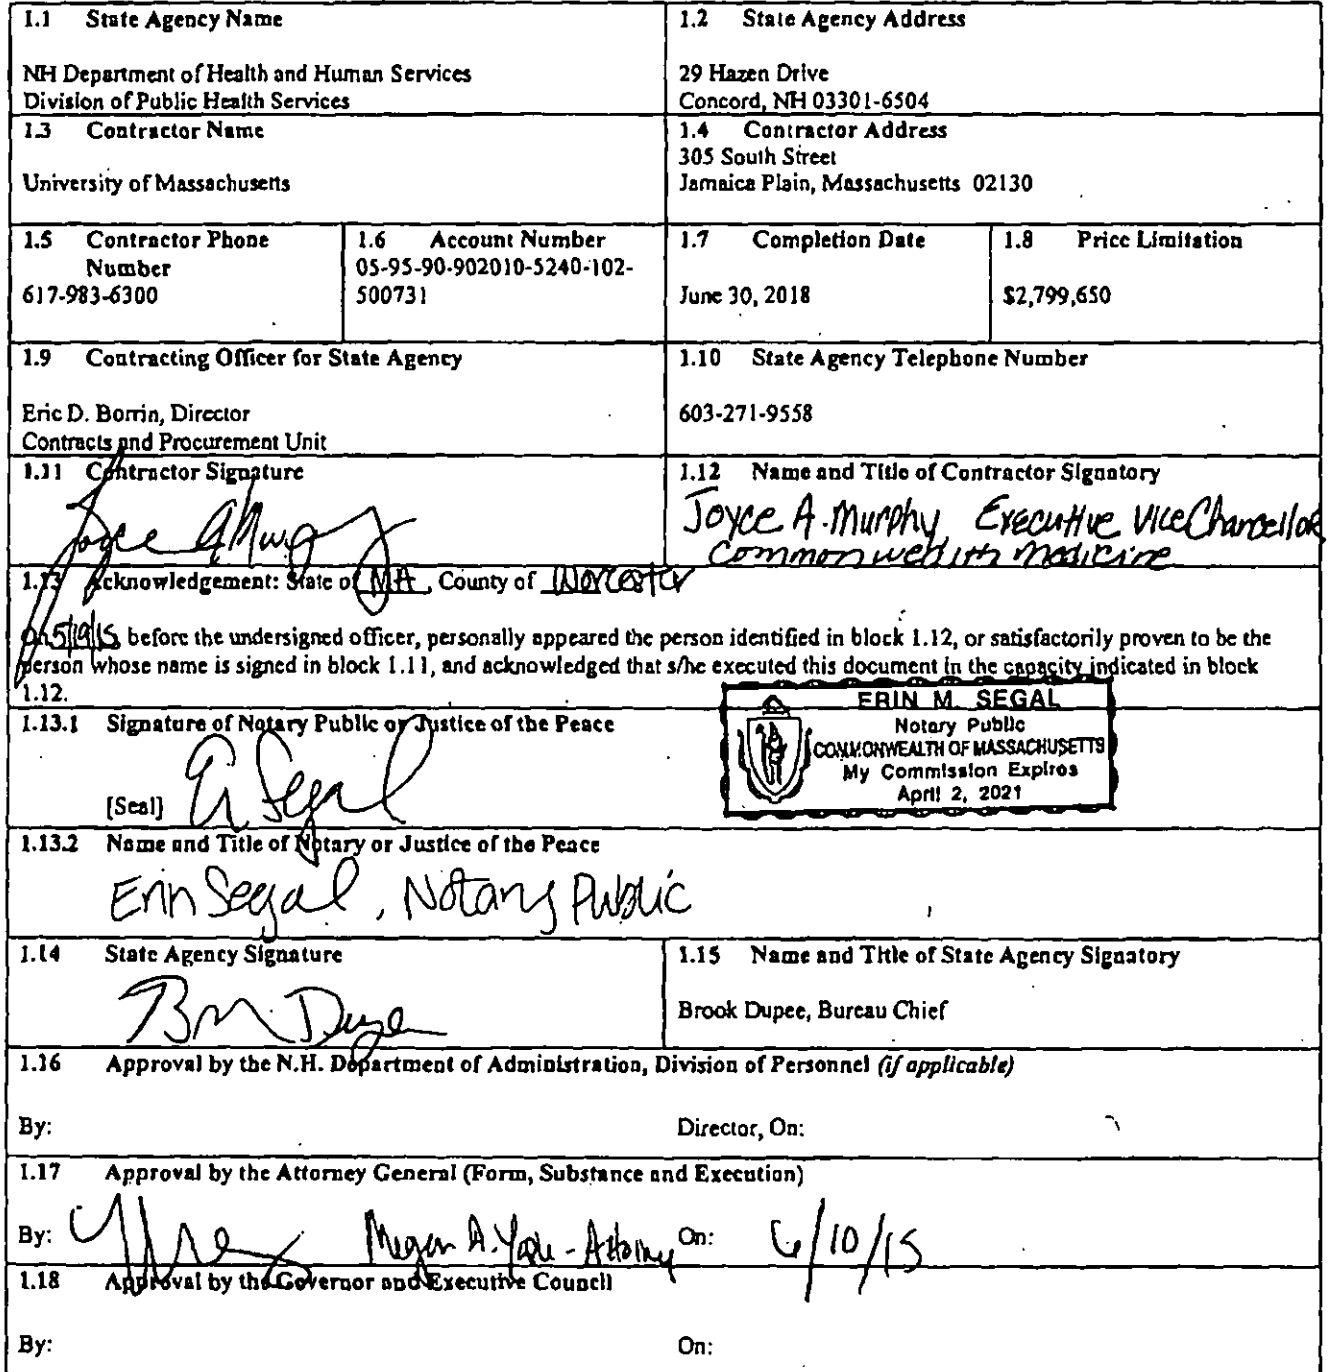 1.1 State Agency Name
NH Department of Health and Human Services
Division of Public Health Services
1.2 State Agency Address
29 Hazen Drive
Concord, NH 03301-6504
1.3 Contractor Name
University of Massachusetts
1.4 Contractor Address
305 South Street
Jamaica Plain, Massachusetts 02130
1.5 Contractor Phone
Number
617-983-6300
1.6 Account Number
05-95-90-902010-5240-102-
500731
1.7 Completion Date
June 30, 2018
1.8 Price Limitation
$2,799,650
1.9 Contracting Officer for State Agency
Eric D. Borrin, Director
Contracts and Procurement Unit
1.10 State Agency Telephone Number
603-271-9558
1.11 Contractor Signature
Joyce A Murphy
1.12 Name and Title of Contractor Signatory
Joyce A. Murphy Executive Vice Chancellor
Commonwealth Medicine
1.13 Acknowledgement: State of MA, County of Worcester
On 5/19/15 before the undersigned officer, personally appeared the person identified in block 1.12, or satisfactorily proven to be the
person whose name is signed in block 1.11, and acknowledged that s/he executed this document in the capacity indicated in block
1.12.
1.13.1 Signature of Notary Public or Justice of the Peace
[Seal] E Segal
ERIN M. SEGAL
Notary Public
COMMONWEALTH OF MASSACHUSETTS
My Commission Expires
April 2, 2021
1.13.2 Name and Title of Notary or Justice of the Peace
Erin Segal, Notary Public
1.14 State Agency Signature
1.15 Name and Title of State Agency Signatory
Brook Dupee, Bureau Chief
1.16 Approval by the N.H. Department of Administration, Division of Personnel (if applicable)
By: Director, On:
1.17 Approval by the Attorney General (Form, Substance and Execution)
By: Megan A. - Attorney On: 6/10/15
1.18 Approval by the Governor and Executive Council
By: On: